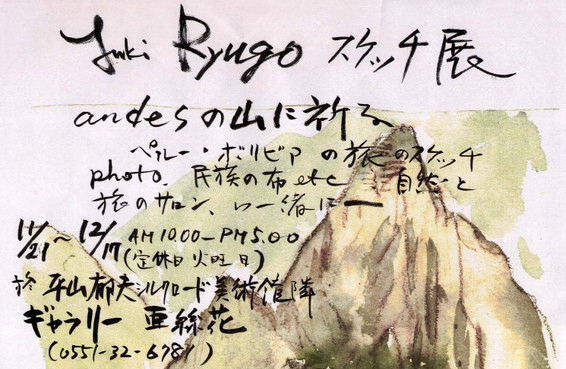 Yuki Ryugo スケッチ展
andesの山に祈る
ペルー・ボリビアの旅のスケッチ
photo、民族の布etc 自然と
旅のサロン、ご一緒に—
11/21〜12/17 AM10.00—PM5.00
(定休日 火曜日)
於 平山郁夫シルクロード美術館隣
ギャラリー 亜絲花
(0551-32-6781)